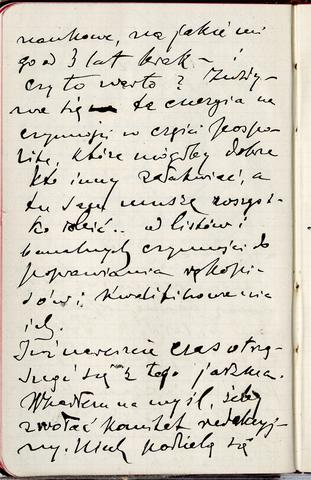 naukowe, na jakie mi
go od 3 lat brak –
czy to warto? Zuży-
wa się ta energia na
czynności w części pospo-
lite, które mógłby dobrze
kto inny załatwiać, a
tu sam muszę wszyst-
ko robić.. od listów i
banalnych czynności do
poprawiania rękopi-
sów i kwalifikowania
ich.
Już nareszcie czas otrzą-
snąć się z tego jarzma.
Wpadłem na myśl, żeby
zwołać komitet redakcyj-
ny. Niech podzielą się